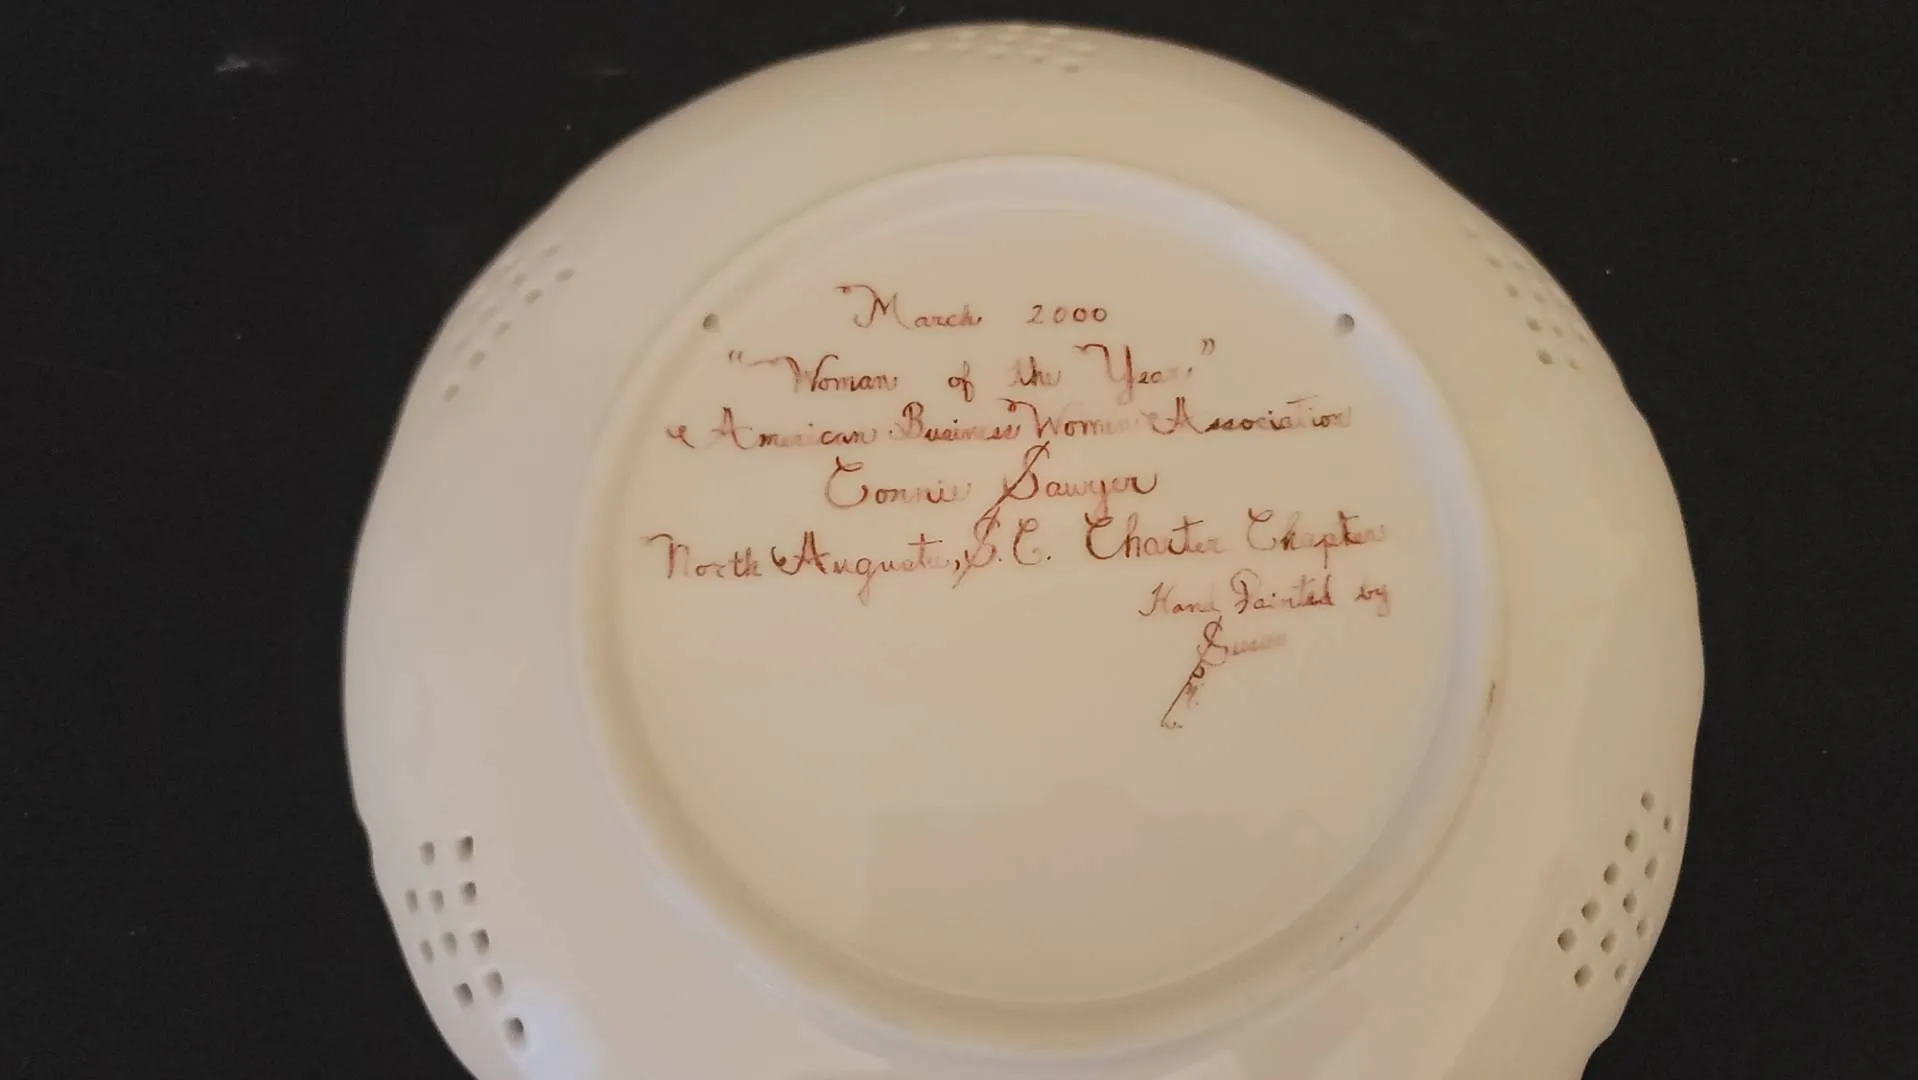 March 2000
"Woman of the Year"
American Business Women Association
Connie Sawyer
North Augusta, S.C. Charter Chapter
Hand Painted by
Susan